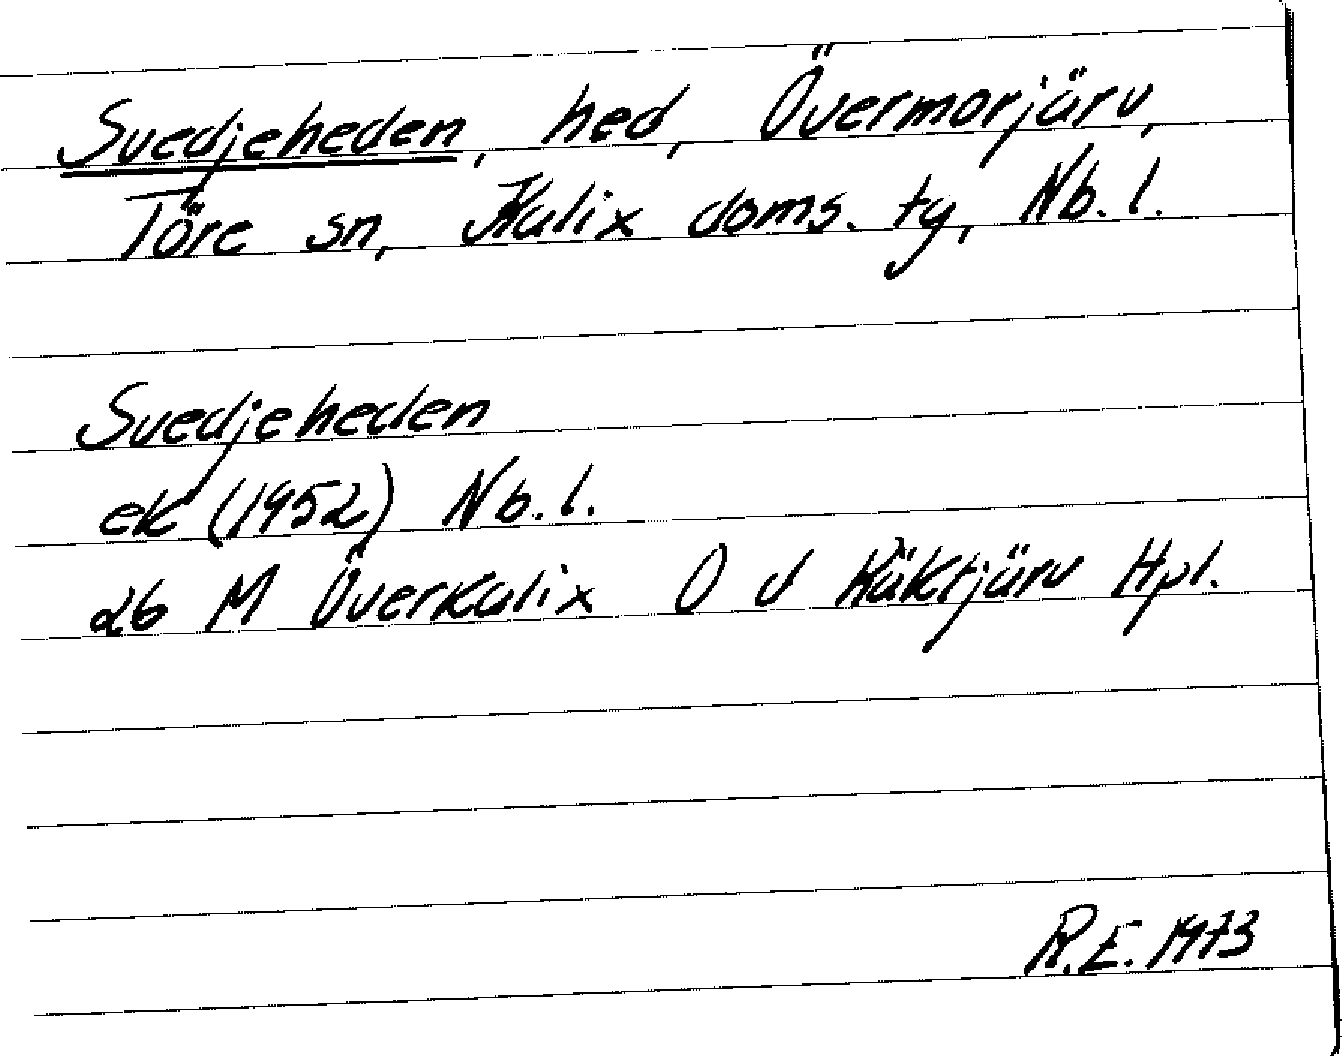 Svedjeheden, hed, Övermorjärv,
Töre sn, Kalix doms. ty, Nb. l.
Svedjeheden
ek (1952) Nb. l.
26 M Överkalix O v Räktjärv Hpl.
R.E. 1973